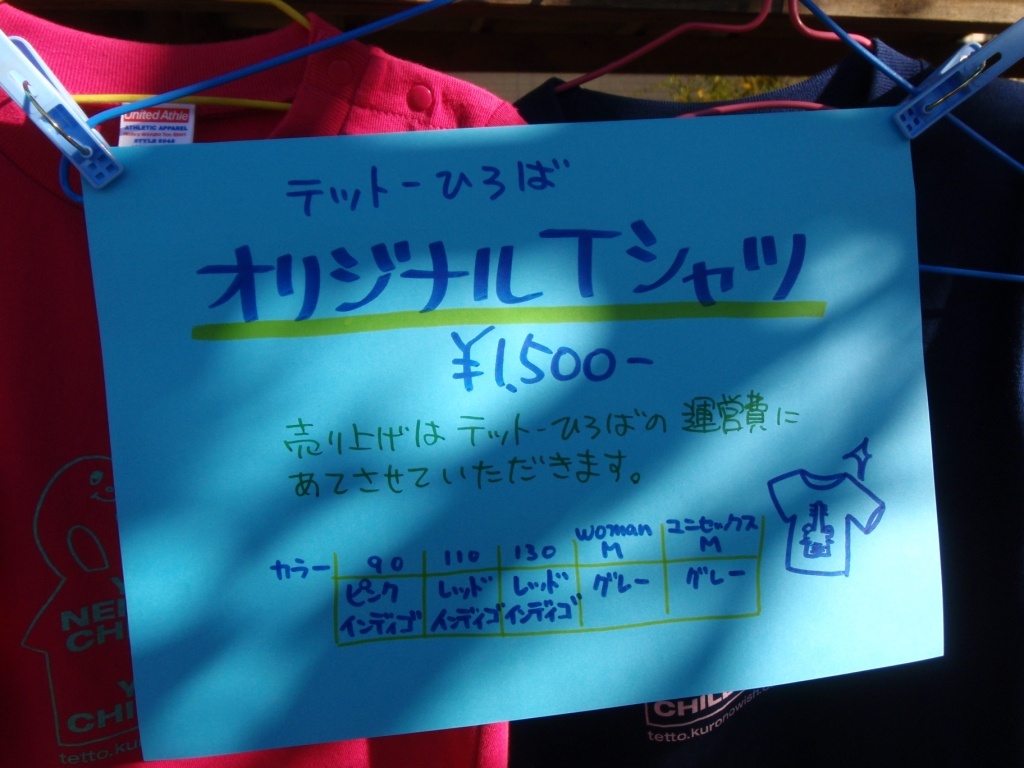 United Athle
ATHLETIC APPAREL
テットーひろば
オリジナルTシャツ
¥1,500-
売り上げは テットーひろばの 運営費に
あてさせていただきます。
カラー 90 110 130 woman M ユニセックス M
ピンク レッド レッド グレー グレー
インディゴ インディゴ インディゴ
CHI
CHIL
tetto.ku
tetto.kuronowish.c